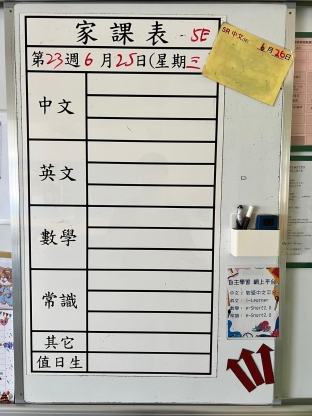 家課表 5E
第23週6月25日(星期三
5A 中文(作)
6月26日
中文
英文
數學
常識
其它
值日生
自主學習 網上平台